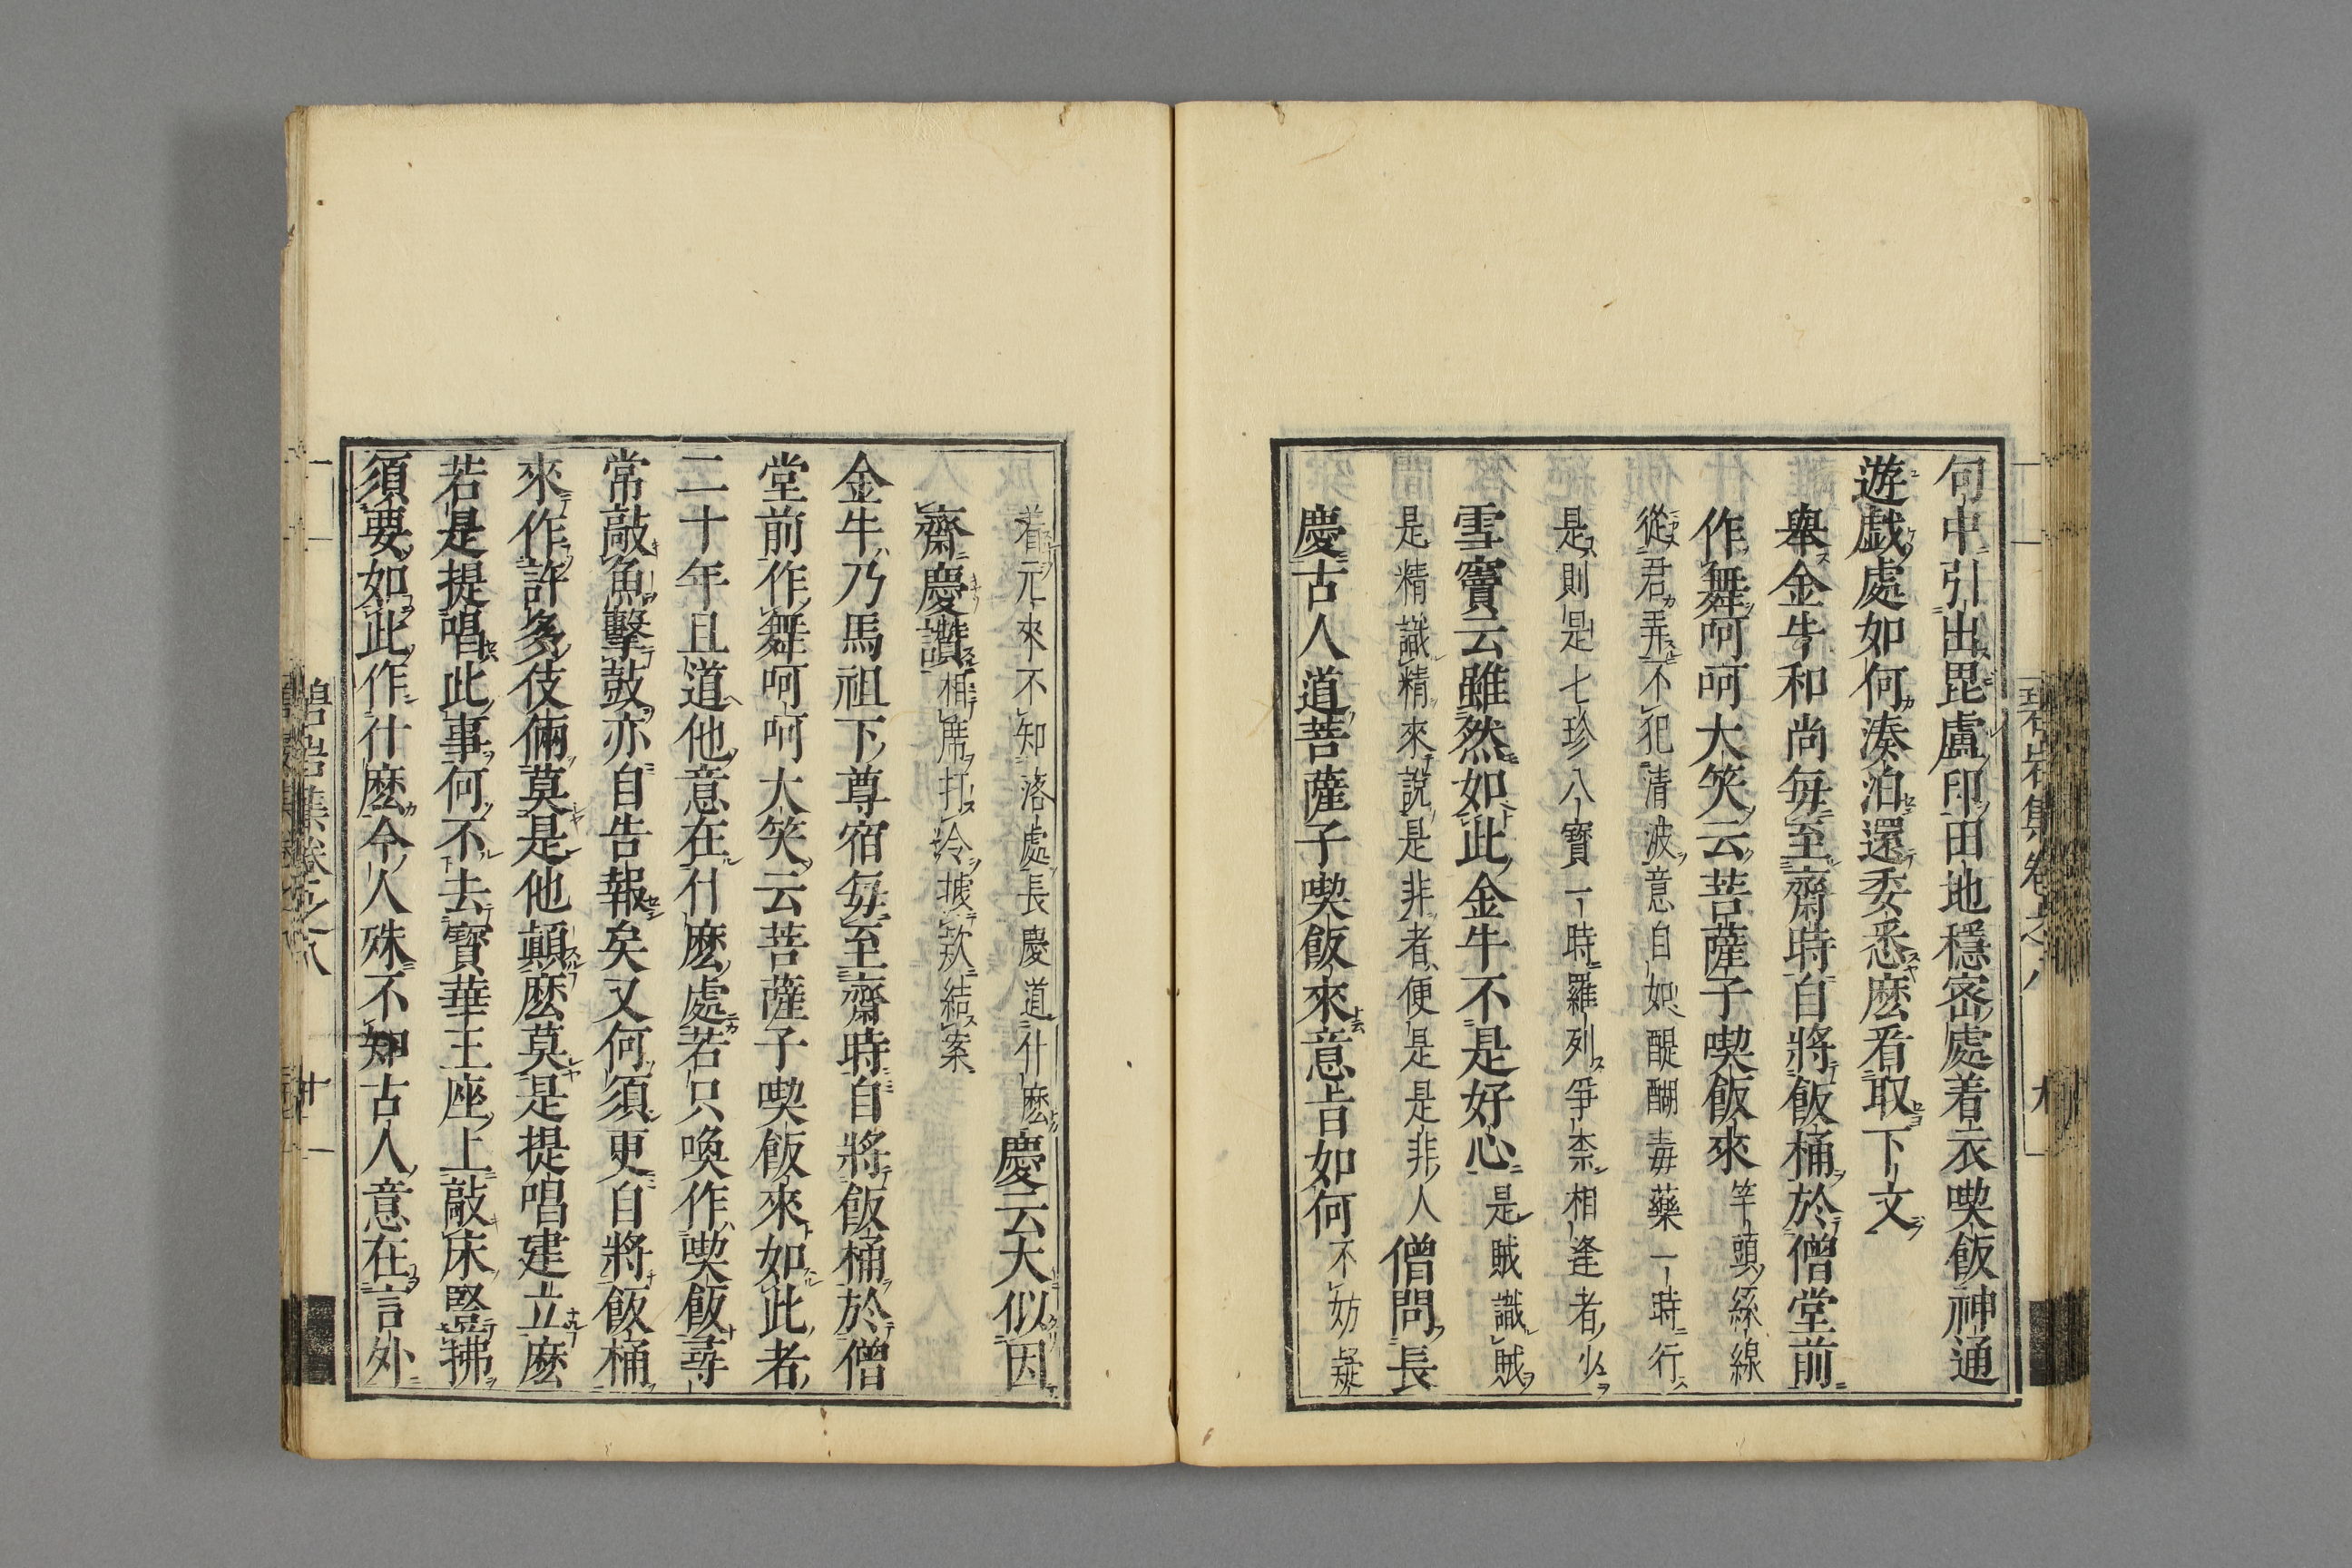 句中引出毘盧印田地穩密處着衣喫飯神通
遊戯處如何湊泊還委悉麽看取下文
擧金牛和尚每至齋時自將飯桶於僧堂前
作舞呵呵大笑云菩薩子喫飯來竿頭絲線
從君弄不犯清波意自如醍醐毒藥一時行
是則是七珍八寶一時羅列爭柰相逢者少
雪竇云雖然如此金牛不是好心是賊識賊
是精識精來說是非者便是是非人僧問長
慶古人道菩薩子喫飯來意旨如何不妨疑
着元來不知落處長慶道什麽慶云大似因
齋慶讚相席打令據欵結案
金牛乃馬祖下尊宿每至齋時自將飯桶於僧
堂前作舞呵呵大笑云菩薩子喫飯來如此者
二十年且道他意在什麽處若只喚作喫飯尋
常敲魚擊鼓亦自告報矣又何須更自將飯桶
來作許多伎倆莫是他顛麽莫是提唱建立麽
若是提唱此事何不去寶華王座上敲床竪拂
須要如此作什麽今人殊不知古人意在言外
碧岩集卷之八
九
碧岩集卷之八
十